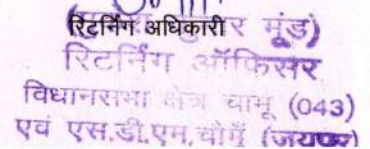 रिटर्निंग अधिकारी
र मूंड)
रिटर्निंग ऑफिसर
विधानसभा क्षेत्र चामू (043)
एवं एस.डी.एम.चौमूँ (जयपुर)